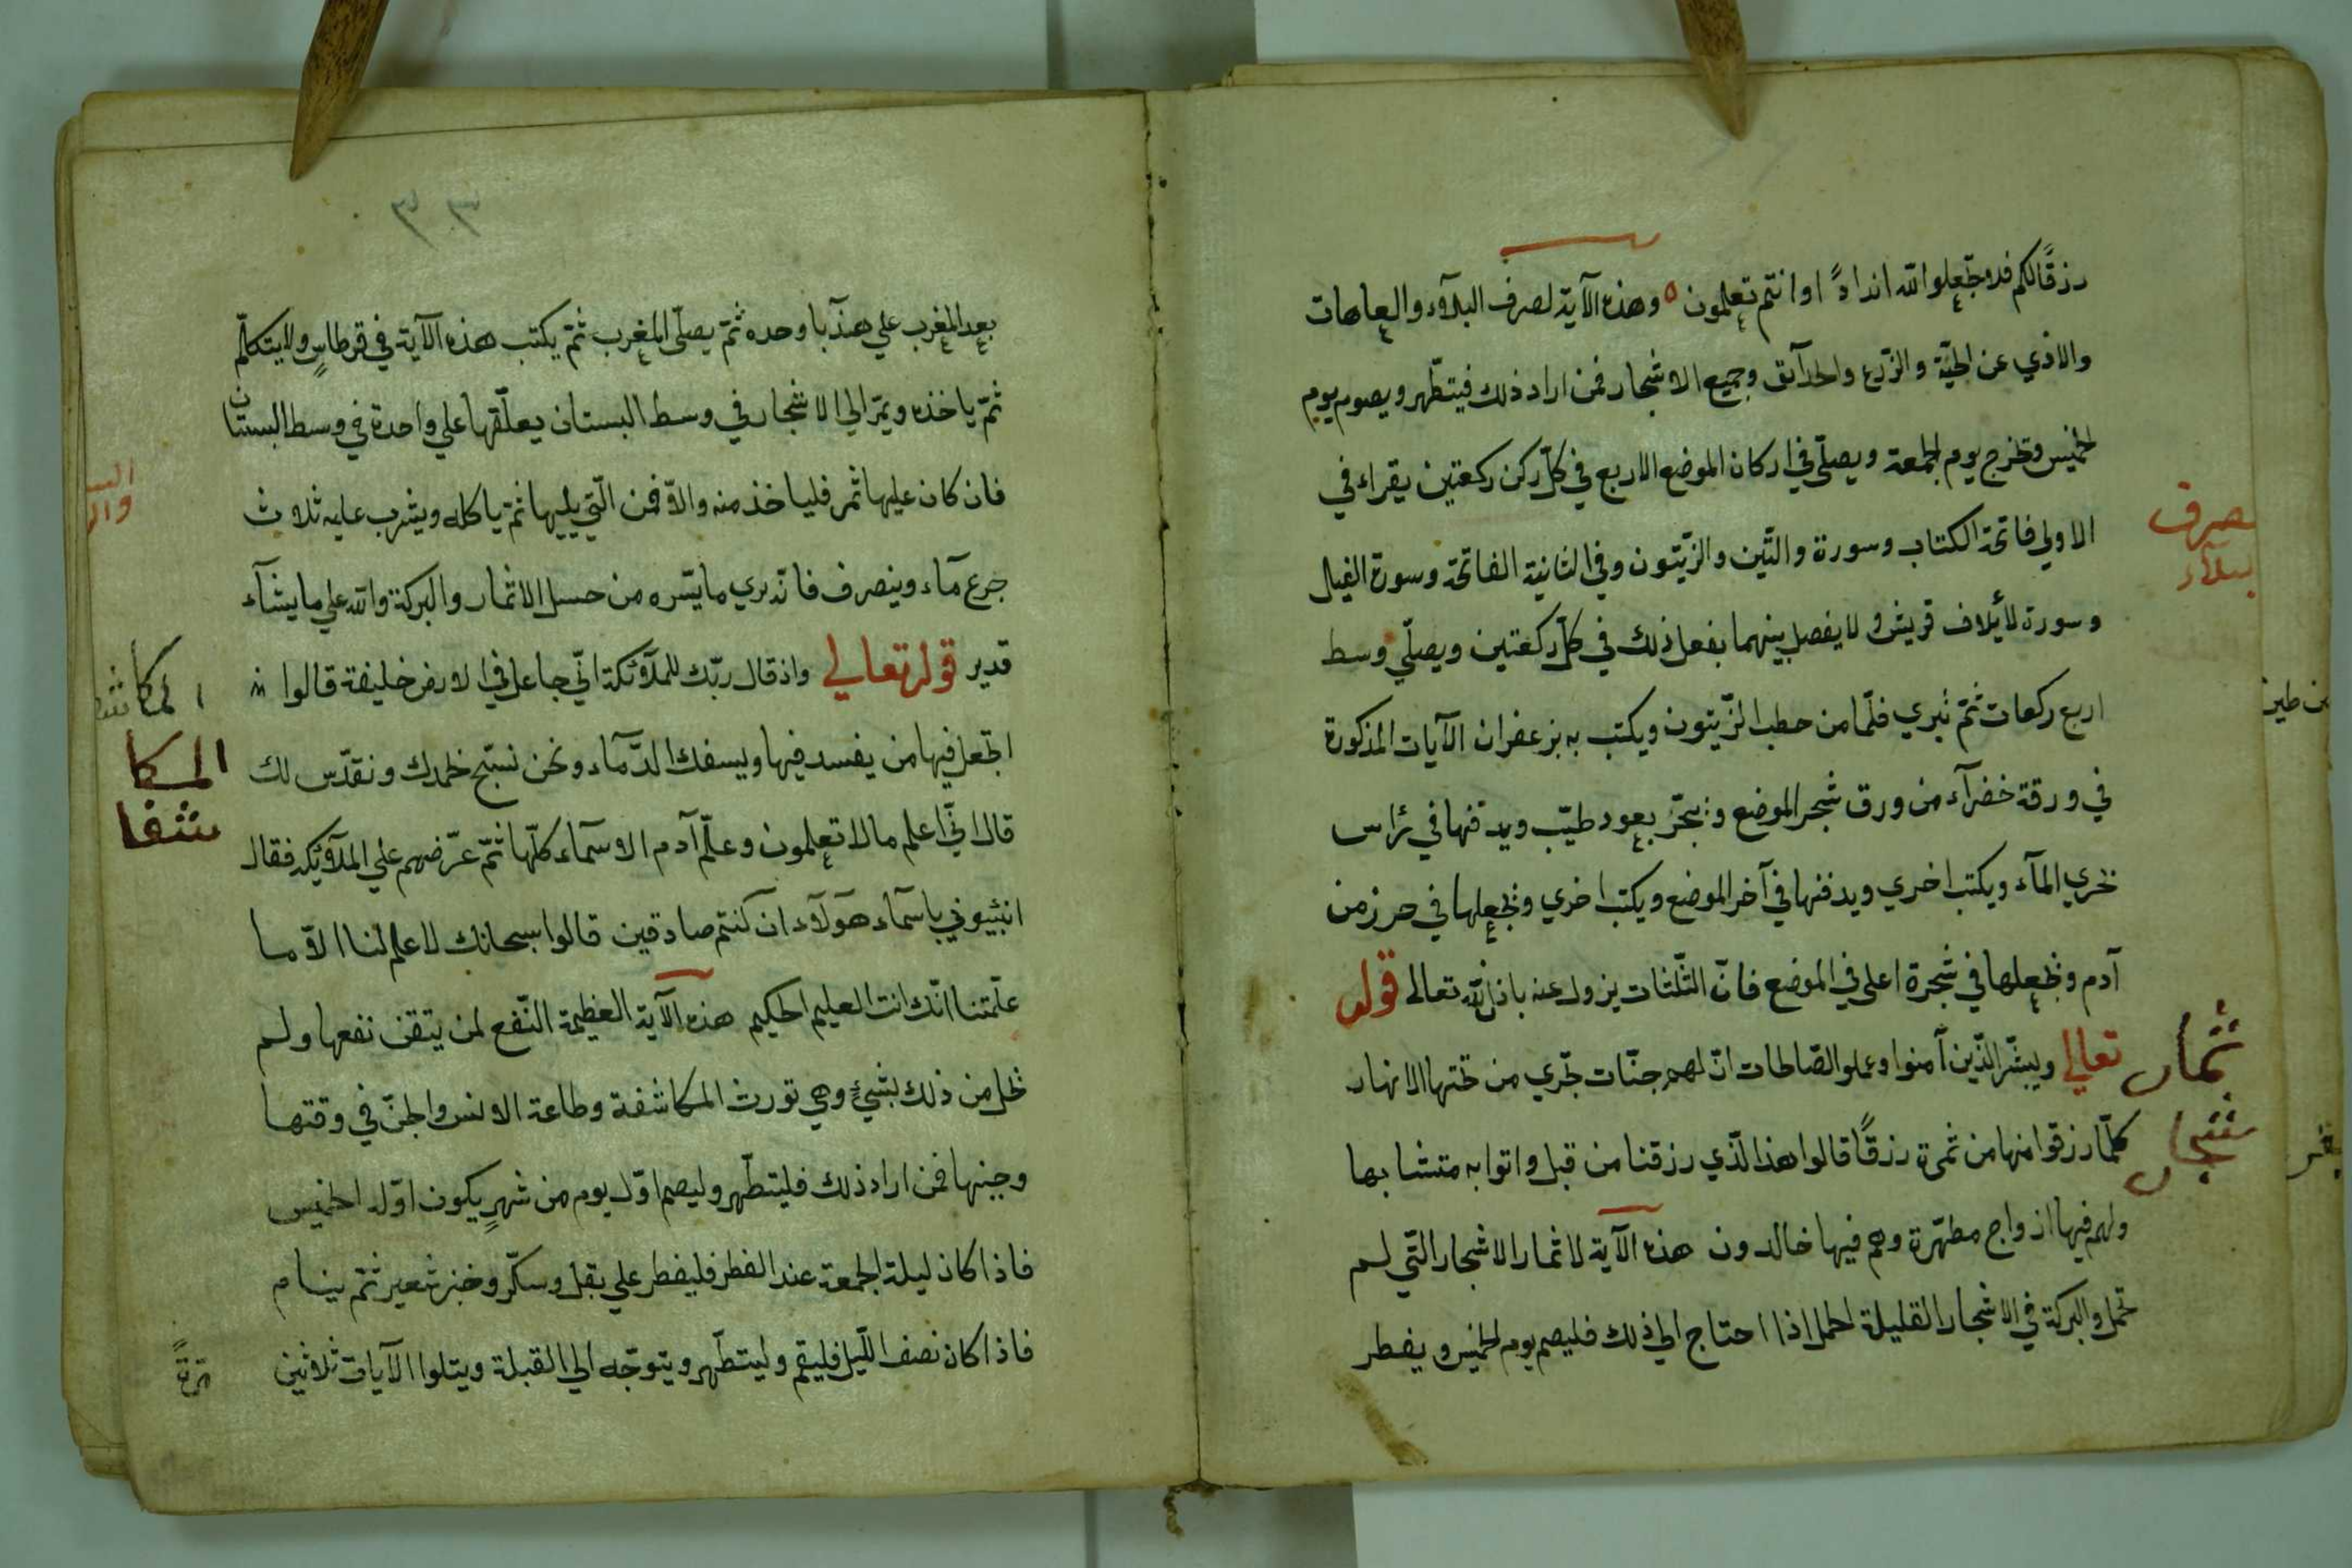 رزقًا لكم فلا تجعلوا لله اندادًا وانتم تعلمون ٥ وهذه الآية لصرف البلآء والعاهات
والاذي عن الجنّة والزّرع والحدآئق وجميع الاشجار فمن اراد ذلك فيتطّهر ويصوم يوم
الخميس وتخرج يوم الجمعة ويصلّي في اركان الموضع الاربع في كلّ ركن ركعتين يقراء في
الاولي فاتحة الكتاب وسورة والتّين والزّيتون وفي الثانية الفاتحة وسورة الفيل
وسورة لأيلاف قريش ولا يفصل بينهما بفعل ذلك في كلّ ركعتين ويصلّي وسط
اربع ركعات ثمّ تبري قلمًا من حطب الزّيتون ويكتب به بزعفران الآيات المذكورة
في ورقة خضرآء من ورق شجر الموضع وتبخّر بعود طيّب ويدفنها في رأس
تجري المآء ويكتب اخري ويدفنها في آخر الموضع ويكتب اخري وتجعلها في حرز من
آدم وتجعلها في شجرة اعلى في الموضع فانّ يزول عنه باذن الله تعالى قوله
تعالي وبشّر الّذين آمنوا وعملوا الصّالحات انّ لهم جنّات تجري من تحتها الانهار
كلّما رزقوا منها من ثمرة رزقًا قالوا هذا الّذي رزقنا من قبل واتوا به متشابها
ولهم فيها ازواج مطهّرة وهم فيها خالدون هذه الآية لاثمار الاشجار التّي لم
تحمل والبركة في الاشجار القليلة الحمل اذا احتاج الي ذلك فليصم يوم الخميس ويفطر
لصرف
البلآء
ثمار
شجار
من طين
٣٣
بعد المغرب علي هندبا وحده ثمّ يصلّي المغرب ثمّ يكتب هذه الآية في قرطاسٍ ولا يتكلّم
ثمّ ياخذه ويمرّ الي الاشجار في وسط البستان يعلّقها علي واحدة في وسط البستان
فان كان عليها ثمر فلياخذ منه والاّ فمن الّتي يليها ثمّ ياكله ويشرب عليه ثلاث
جرع مآء وينصرف فانّه يري ما يسّره من حسن الاثمار والبركة والله علي ما يشآء
قدير قوله تعالي واذ قال ربّك للملآئكة انّي جاعل في الارض خليفة قالوا
اتجعل فيها من يفسد فيها ويسفك الدّمآء ونحن نسبّح بحمدك ونقدّس لك
قال انّي اعلم مالا تعلمون وعلّم آدم الاسمآء كلّها ثمّ عرّضهم علي الملآئكة فقال
انبئيوني باسمآء هؤلآء ان كنتم صادقين قالوا سبحانك لا علم لنا الاّ ما
علّمتنا انّك انت العليم الحكيم هذه الآية العظيمة النّفع لمن يتقن نفعها ولم
تخل من ذلك بشيءٍ وهي تورث المكاشفة وطاعة الانس والجنّ في وقتها
وحينها فمن اراد ذلك فليتطّهر وليصم اوّل يوم من شهرٍ يكون اوّله الخميس
فاذا كان ليلة الجمعة عند الفطر فليفطر علي بقل وسكّر وخبز شعير ثمّ ينام
فاذا كان نصف اللّيل فليقم وليتطّهر ويتوجّه الي القبلة ويتلوا الآيات ثلاثين
مرّةً
المكا
شفا